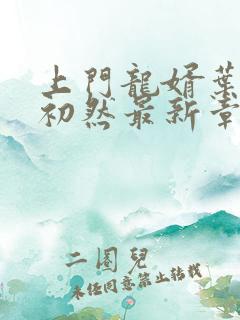 上門龍婿葉
初然最新章
二圈兒
未经同意禁止转载